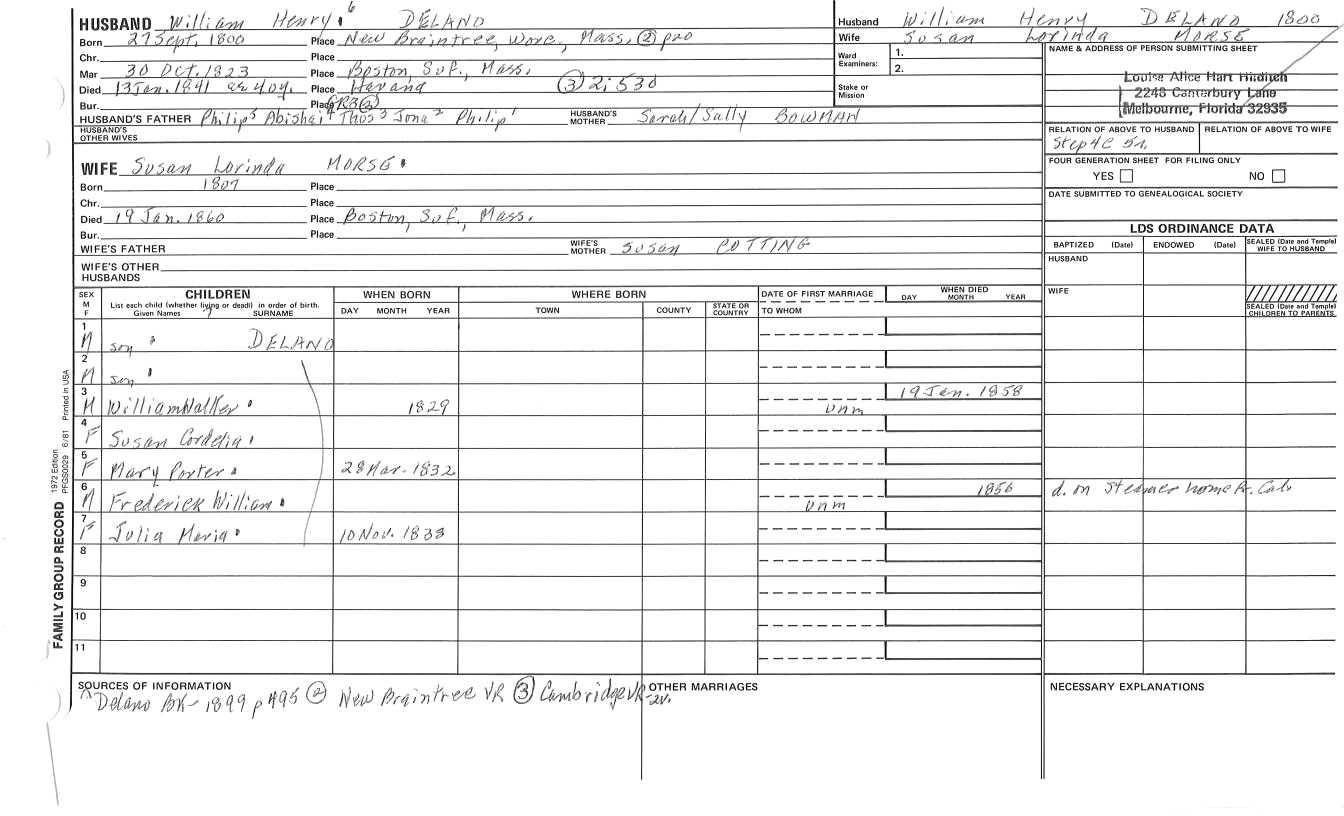 HUSBAND William Henry 6 DELANO
Born 27 Sept. 1800 Place New Braintree, Worc., Mass. (2) p20
Chr. Place
Mar 30 Oct. 1823 Place Boston, Suf., Mass.
Died 13 Jan. 1841 ae 40y. Place Havana (3) 2:530
Bur. Place GR3(3)
HUSBAND'S FATHER Philip5 Abishai4 Thos3 Jona2 Philip1 HUSBAND'S MOTHER Sarah/Sally BOWMAN
HUSBAND'S OTHER WIVES
WIFE Susan Lorinda MORSE
Born 1807 Place
Chr. Place
Died 19 Jan. 1860 Place Boston, Suf., Mass.
Bur. Place
WIFE'S FATHER WIFE'S MOTHER Susan COTTING
WIFE'S OTHER HUSBANDS
Husband William Henry DELANO 1800
Wife Susan Lorinda MORSE
Ward Examiners: 1.
2.
Stake or Mission
NAME & ADDRESS OF PERSON SUBMITTING SHEET
Louise Alice Hart Hilditch
2248 Canterbury Lane
Melbourne, Florida 32935
RELATION OF ABOVE TO HUSBAND RELATION OF ABOVE TO WIFE
Step 4C 5r.
FOUR GENERATION SHEET FOR FILING ONLY
YES NO
DATE SUBMITTED TO GENEALOGICAL SOCIETY
LDS ORDINANCE DATA
BAPTIZED (Date) ENDOWED (Date) SEALED (Date and Temple) WIFE TO HUSBAND
HUSBAND
WIFE
SEALED (Date and Temple) CHILDREN TO PARENTS
SEX M F CHILDREN List each child (whether living or dead) in order of birth. Given Names SURNAME
WHEN BORN DAY MONTH YEAR
WHERE BORN TOWN COUNTY STATE OR COUNTRY
DATE OF FIRST MARRIAGE TO WHOM
WHEN DIED DAY MONTH YEAR
1 M son DELANO
2 M son
3 M William Walker 1829 unm 19 Jan. 1858
4 F Susan Cordelia
5 F Mary Porter 28 Mar. 1832
6 M Frederick William unm 1856 d. on steamer home fr. Cal.
7 F Julia Maria 10 Nov. 1838
8
9
10
11
FAMILY GROUP RECORD 1972 Edition PFGS0029 6/81 Printed in USA
SOURCES OF INFORMATION
Delano BK - 1899 p 495 (2) New Braintree VR (3) Cambridge VR-2v.
OTHER MARRIAGES
NECESSARY EXPLANATIONS